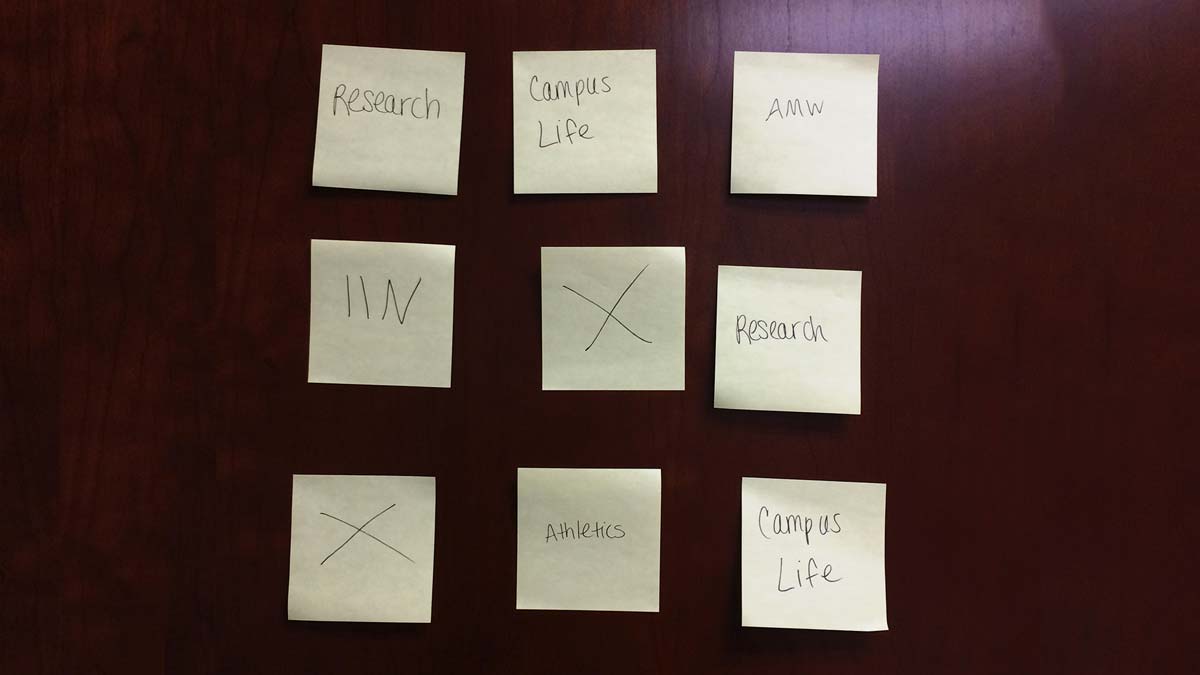 Research
Campus
Life
AMW
IIN
X
Research
X
Athletics
Campus
Life